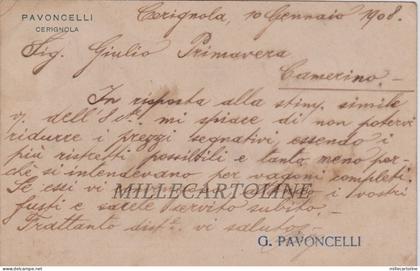 PAVONCELLI
CERIGNOLA
Cerignola, 10 Gennaio 1908.
Sig. Giulio Primavera
Camerino.-
In risposta alla stim. simile
v/ dell' mi spiace di non potervi
ridurre i prezzi segnativi, essendo i
più ristretti possibili e tanto meno per-
chè si intendevano per vagoni completi.
Se essi vi i vostri
fusti e sarete servito subito.-
Trattanto dist. vi saluto.-
MILLECARTOLINE
G. PAVONCELLI